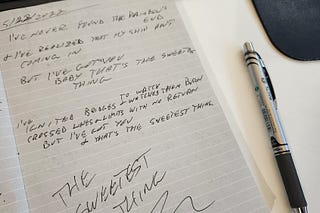 5/22/2022
I'VE NEVER FOUND THE RAINBOW'S
END
& I'VE REALIZED THAT MY SHIP AIN'T
COMING IN
BUT I'VE GOT YOU
BABY THAT'S THE SWEETEST
THING
I'VE TO WATCH
IGNITED BRIDGES & WATCHES THEM BURN
CROSSED LINES & LIMITS WITH NO RETURN
BUT I'VE GOT YOU
& THAT'S THE SWEETEST THING
THE
SWEETEST
THING